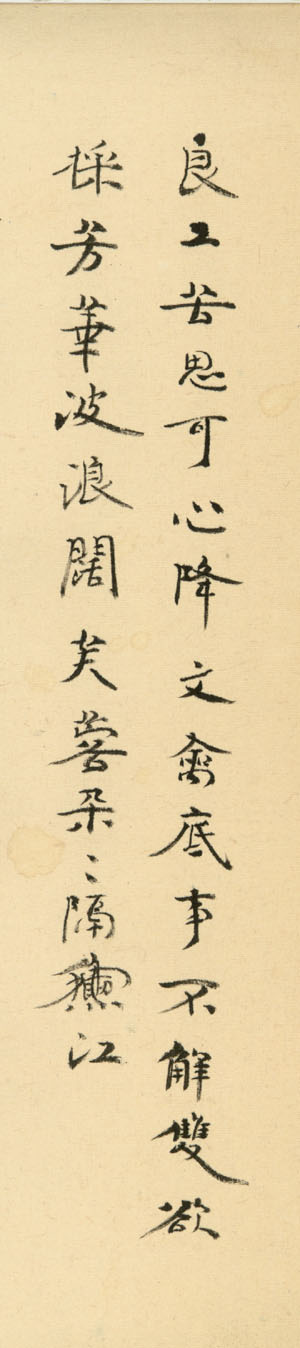 良工苦思可心降文禽底事不解雙欲
採芳華波浪闊芙蓉朵〻隔龝江